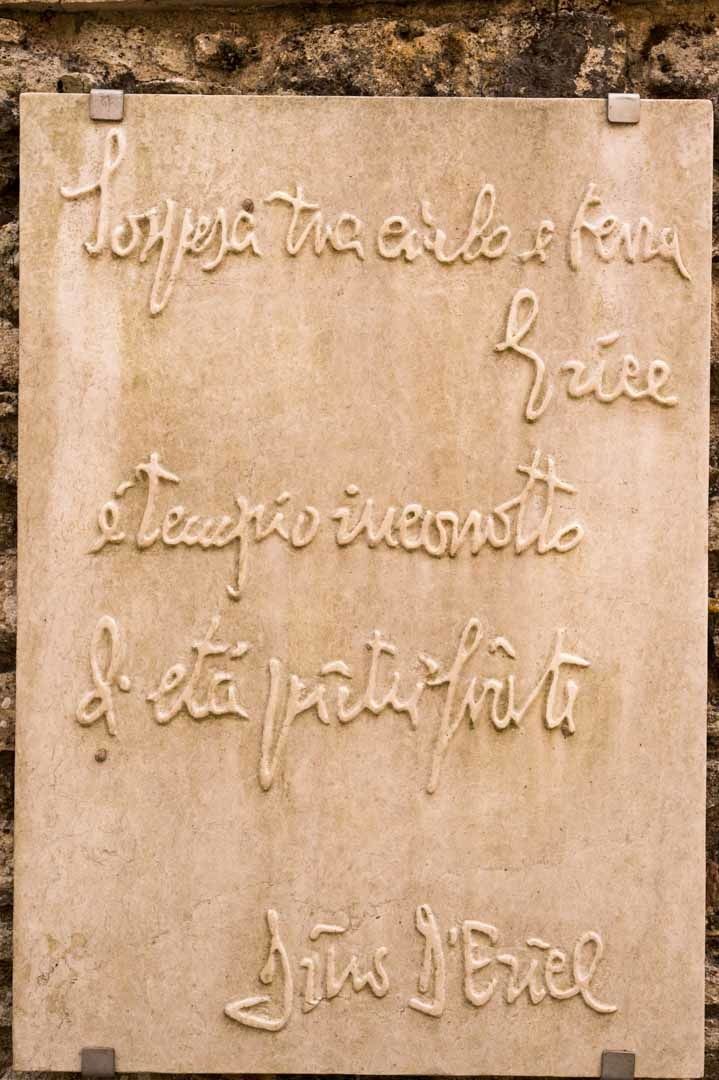 Sospesa tra cielo e terra
Erice
é tempio incorrotto
d'etá pietrificate
Dino D'Erice